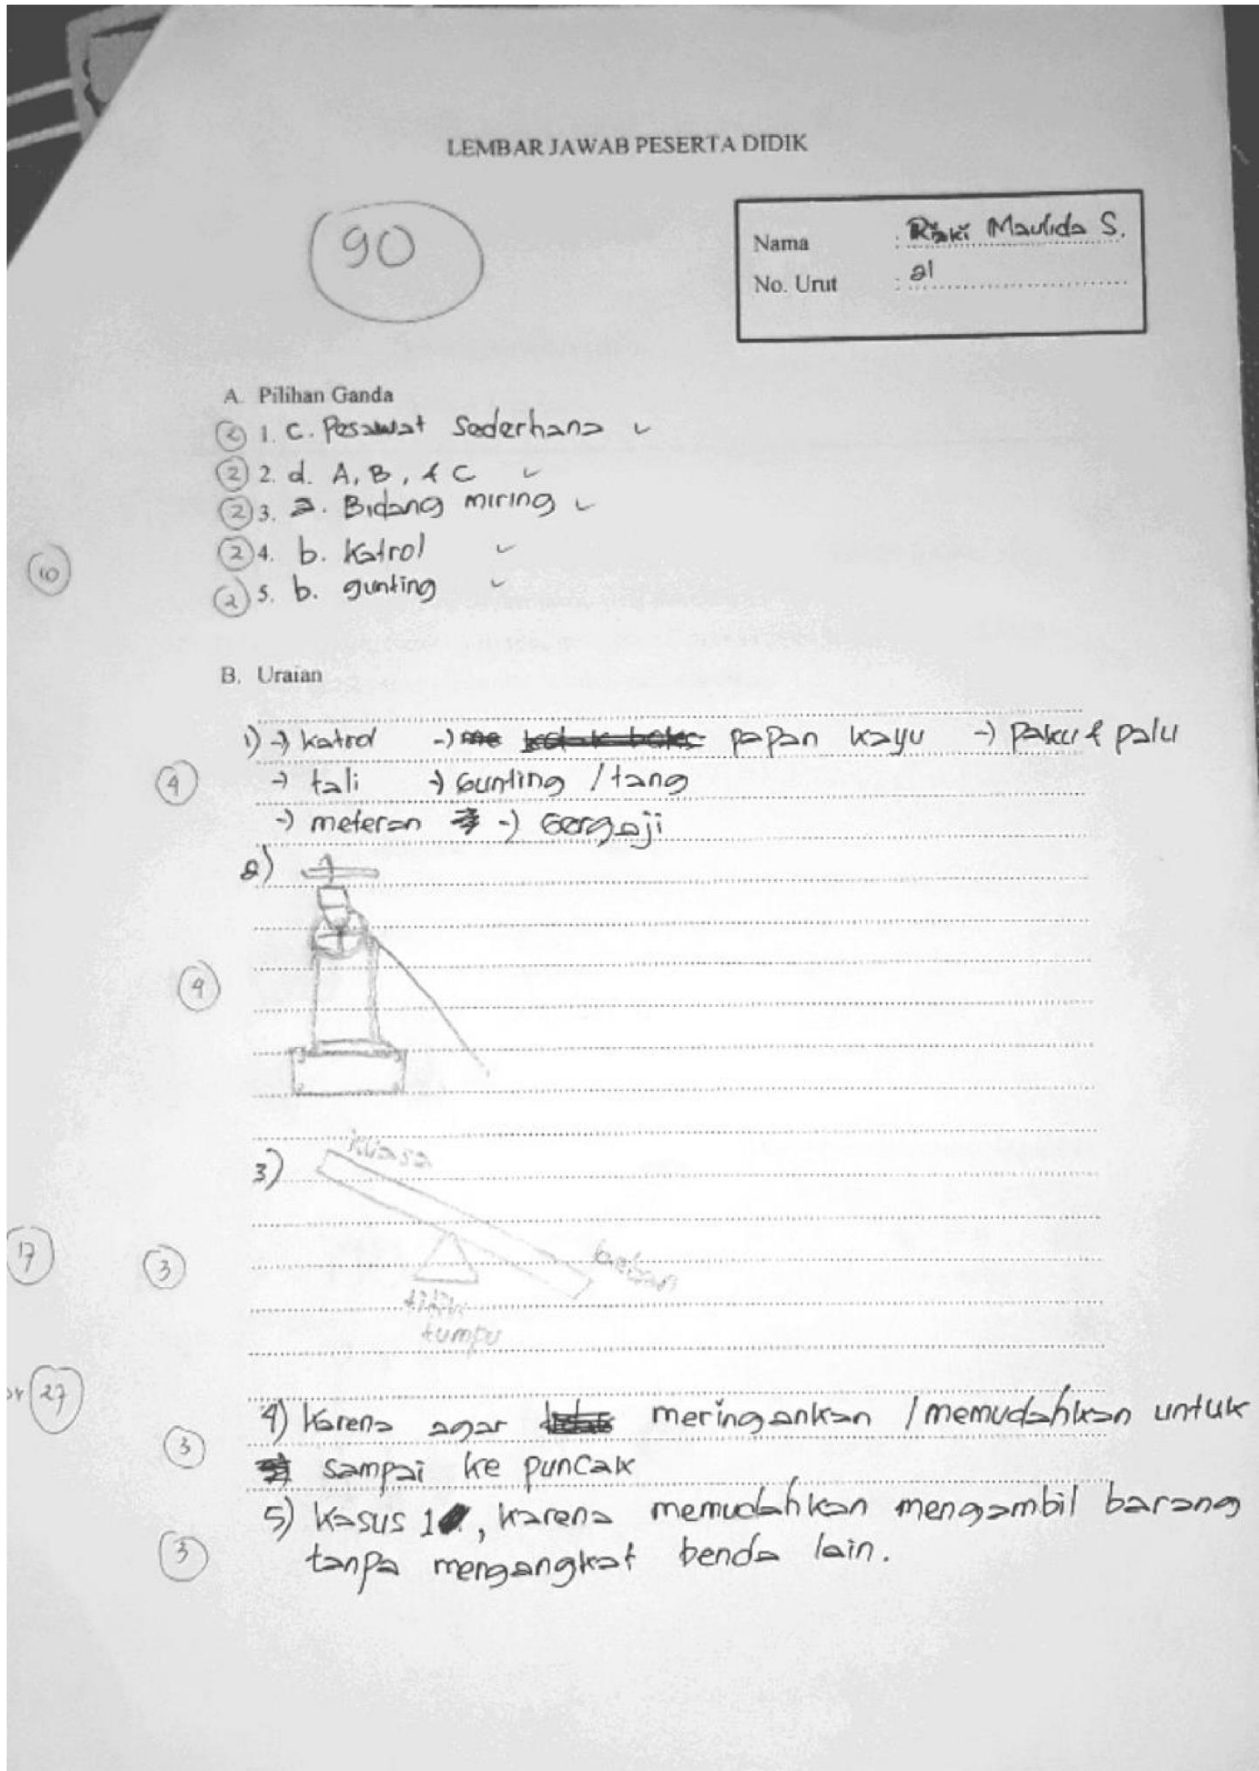 LEMBAR JAWAB PESERTA DIDIK
90
Nama : Rizki Maulida S.
No. Urut : 21
A. Pilihan Ganda
2 1. C. Pesawat Sederhana
2 2. d. A, B, & C
2 3. a. Bidang miring
2 4. b. Katrol
10
2 5. b. gunting
B. Uraian
1) → katrol → papan kayu → Paku & palu
4 → tali → Gunting / tang
→ meteran → Gergaji
2)
4
3) kuasa
17 3 beban
titik
tumpu
27
4) Karena agar meringankan / memudahkan untuk
3 sampai ke puncak
5) Kasus 1, karena memudahkan mengambil barang
3 tanpa mengangkat benda lain.